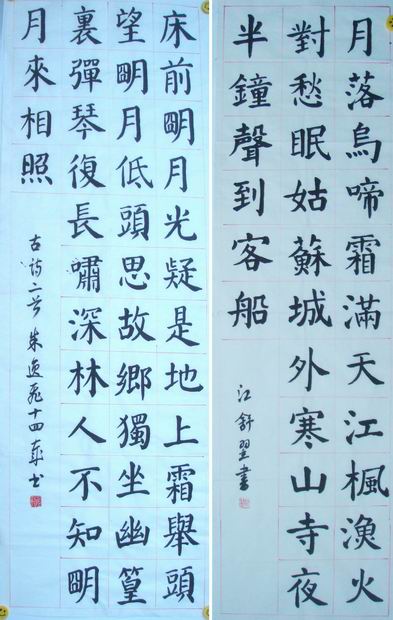 月落烏啼霜滿天江楓漁火
對愁眠姑蘇城外寒山寺夜
半鐘聲到客船
江舒翌書
床前眀月光疑是地上霜舉頭
望眀月低頭思故鄉獨坐幽篁
裏彈琴復長嘯深林人不知眀
月來相照
古詩二首 朱逸飛十四歲书